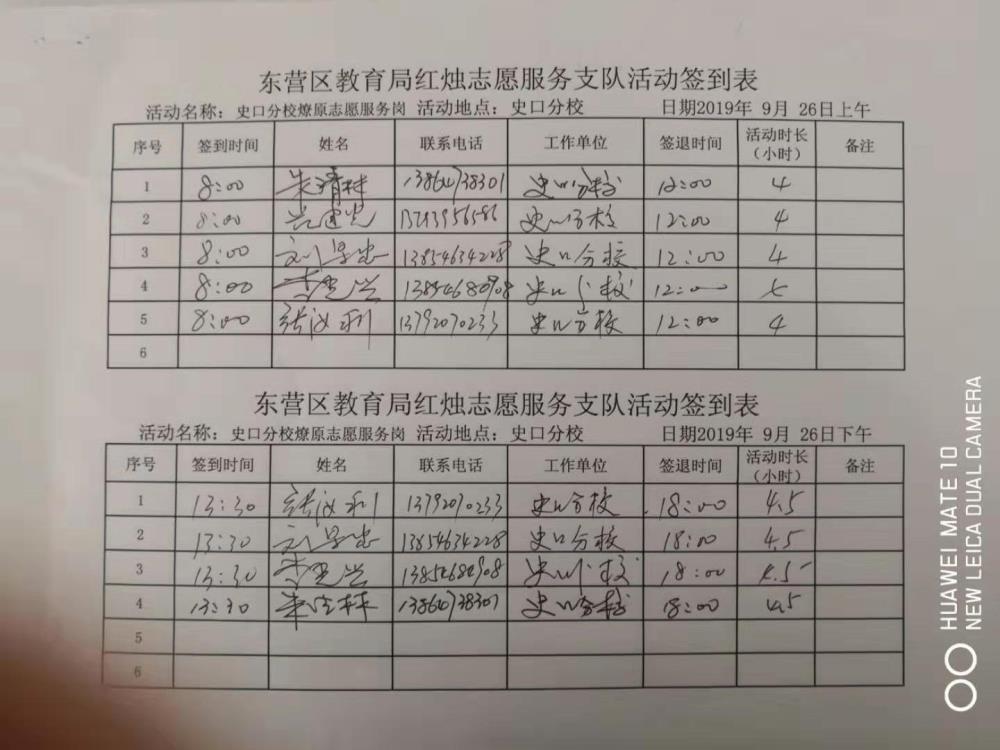 东营区教育局红烛志愿服务支队活动签到表
活动名称：史口分校燎原志愿服务岗 活动地点：史口分校 日期2019年 9月 26日上午
序号 签到时间 姓名 联系电话 工作单位 签退时间 活动时长（小时） 备注
1 8:00 13864738301 史口分校 12:00 4
2 8:00 史口分校 12:00 4
3 8:00 13854634228 史口分校 12:00 4
4 8:00 史口分校 12:00
5 8:00 13792070233 史口分校 12:00 4
6
东营区教育局红烛志愿服务支队活动签到表
活动名称：史口分校燎原志愿服务岗 活动地点：史口分校 日期2019年 9月 26日下午
序号 签到时间 姓名 联系电话 工作单位 签退时间 活动时长（小时） 备注
1 13:30 13792070233 史口分校 18:00 4.5
2 13:30 13854634228 史口分校 18:00 4.5
3 13:30 史口分校 18:00 4.5
4 13:30 史口分校 18:00 4.5
5
6
HUAWEI MATE 10
NEW LEICA DUAL CAMERA